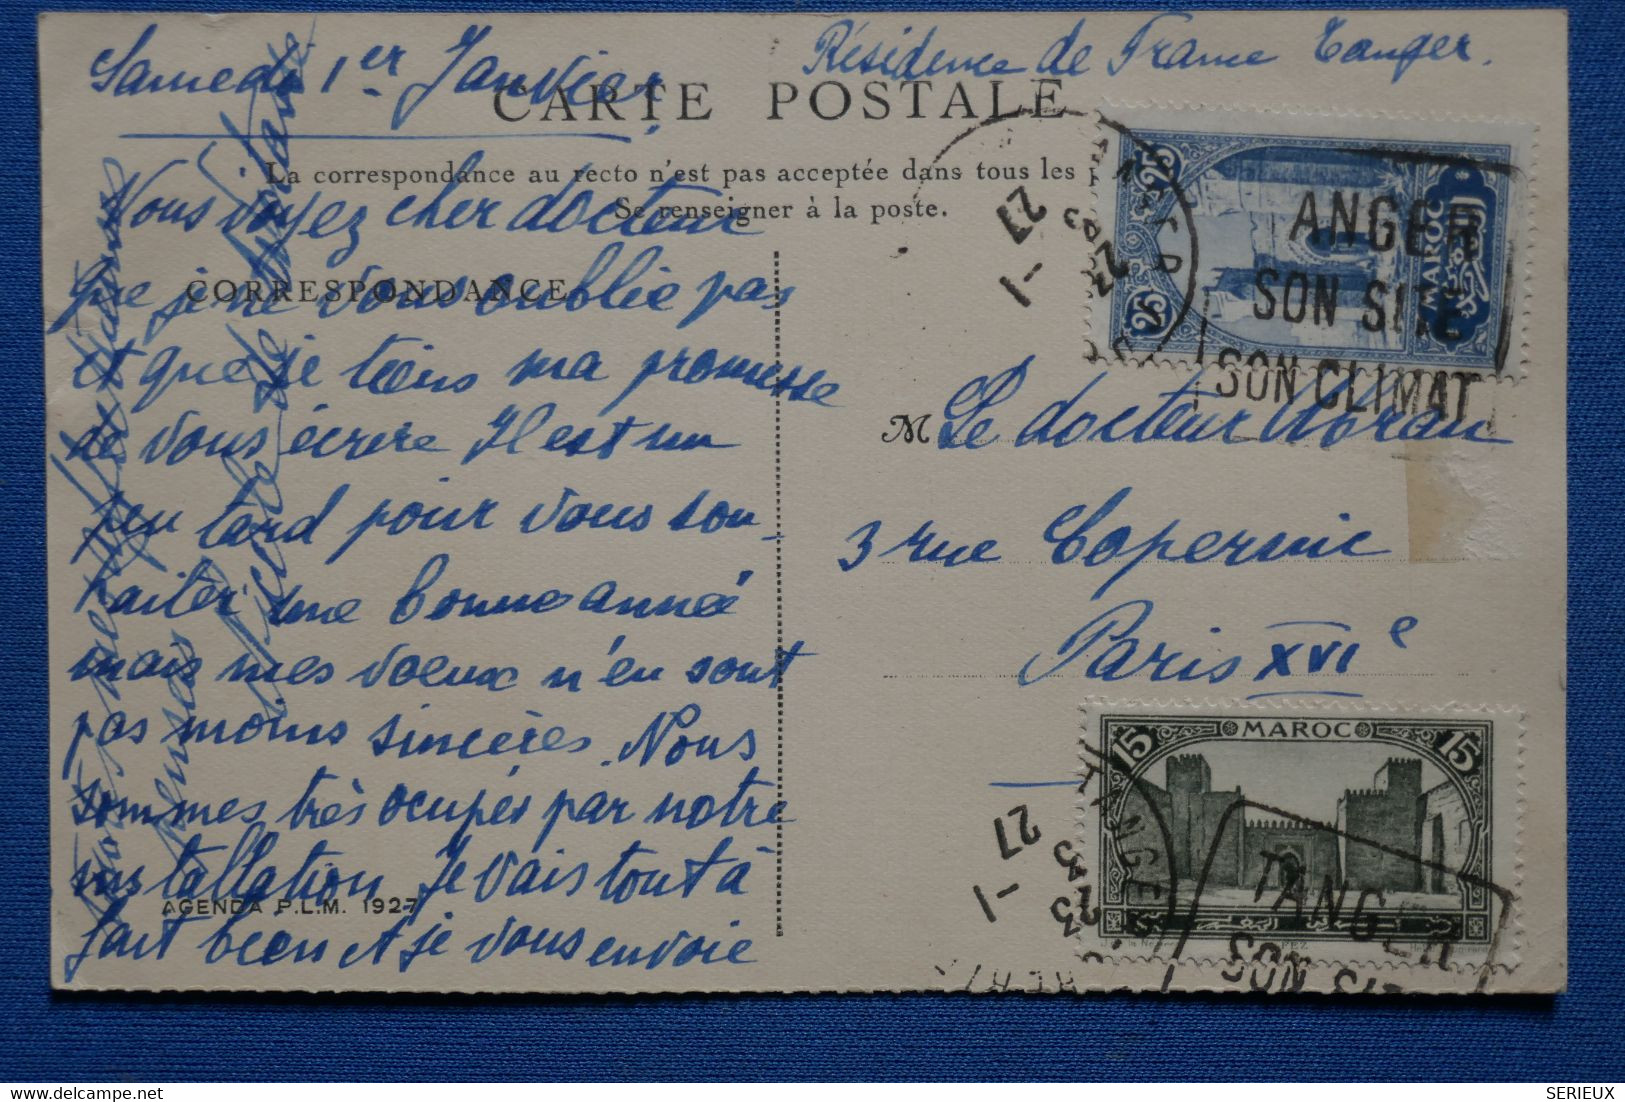 Samedi 1er Janvier
Résidence de France Tanger.
CARTE POSTALE
La correspondance au recto n'est pas acceptée dans tous les
Se renseigner à la poste.
CORRESPONDANCE
Vous voyez cher docteur
que je ne vous oublie pas
et que je tiens ma promesse
de vous écrire Il est un
peu tard pour vous sou-
haiter une bonne année
mais mes voeux n'en sont
pas moins sincères. Nous
sommes très occupés par notre
installation. Je vais tout à
fait bien et je vous envoie
pensées
AGENDA P.L.M. 1927
M Le docteur
3 rue Copernic
Paris XVIe
25 25
MAROC
TANGER
1-1
27
ANGER
SON SITE
SON CLIMAT
15 MAROC 15
FEZ
TANGER
1-1
27
TANGER
SON
SERIEUX